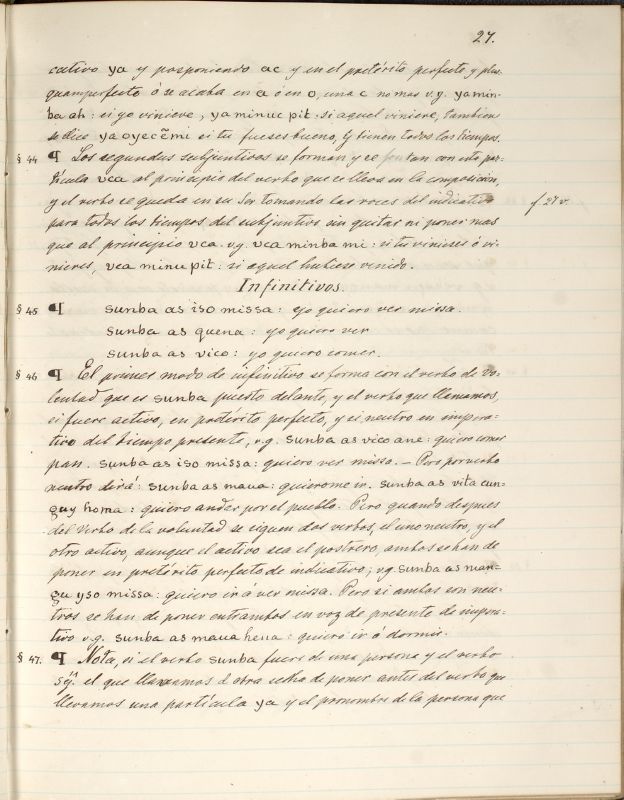 27.
cativo ya y posponiendo ac y en el pretérito perfecto y plus-
quamperfecto ó se acaba en a ó en o, una c no mas v.g. yamin-
ba ah: si yo viniese, ya minuc pit: si aquel viniese, tambien
se dice ya oyecẽmi si tu fueses bueno, y tienen todos los tiempos.
§ 44 ¶ Los segundos subjuntivos se forman y se con esta par-
tícula vca al principio del verbo que se lleva en la composicion,
y el verbo se queda en su ser tomando las voces del indicativo f. 27 v.
para todos los tiempos del subjuntivo sin quitar ni poner mas
que al principio vca. v.g. vca minba mi: si tu vinieses ó vi-
nieres, vca minu pit: si aquel hubiese venido.
Infinitivos.
§ 45 ¶ sunba as iso missa: yo quiero ver missa.
sunba as quena: yo quiero ver
sunba as vico: yo quiero comer.
§ 46 ¶ El primer modo de infinitivo se forma con el verbo de vo-
luntad que es sunba puesto delante, y el verbo que llevamos,
si fuere activo, en pretérito perfecto, y si neutro en impera-
tivo del tiempo presente, v.g. sunba as vico ane: quiero comer
pan. sunba as iso missa: quiero ver missa. — Pero por verbo
neutro dirá: sunba as maua: quierome ir. sunba as vita cun-
guy homa: quiero andar por el pueblo. Pero quando despues
del verbo de la voluntad se siguen dos verbos, el uno neutro, y el
otro activo, aunque el activo sea el postrero, ambos se han de
poner en pretérito perfecto de indicativo; v.g. sunba as man-
gu yso missa: quiero ir á ver missa. Pero si ambos son neu-
tros se han de poner entrambos en voz de presente de impera-
tivo v.g. sunba as maua heua: quiero ir á dormir.
§ 47. ¶ Nota, si el verbo sunba fuere de una persona y el verbo
seg. el que llevaramos d otra se ha de poner antes del verbo que
llevamos una partícula ya y el pronombre de la persona que